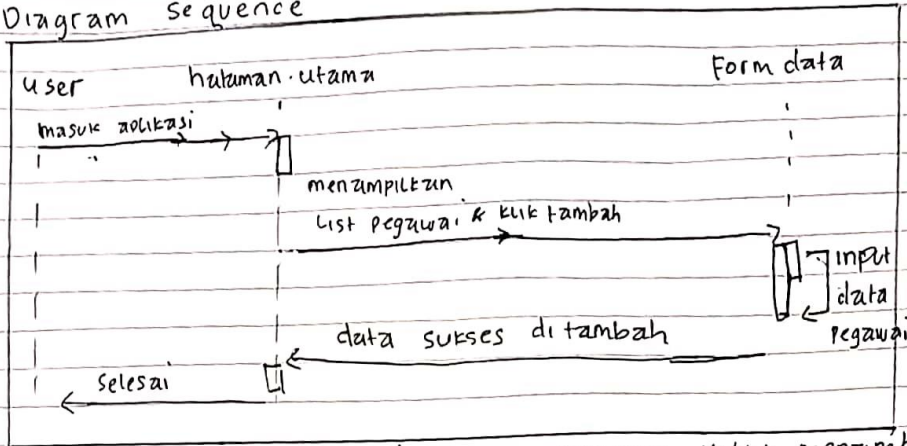 Diagram Sequence
user halaman utama Form data
masuk aplikasi
menampilkan
List pegawai & klik tambah
input
data
pegawai
data sukses di tambah
selesai